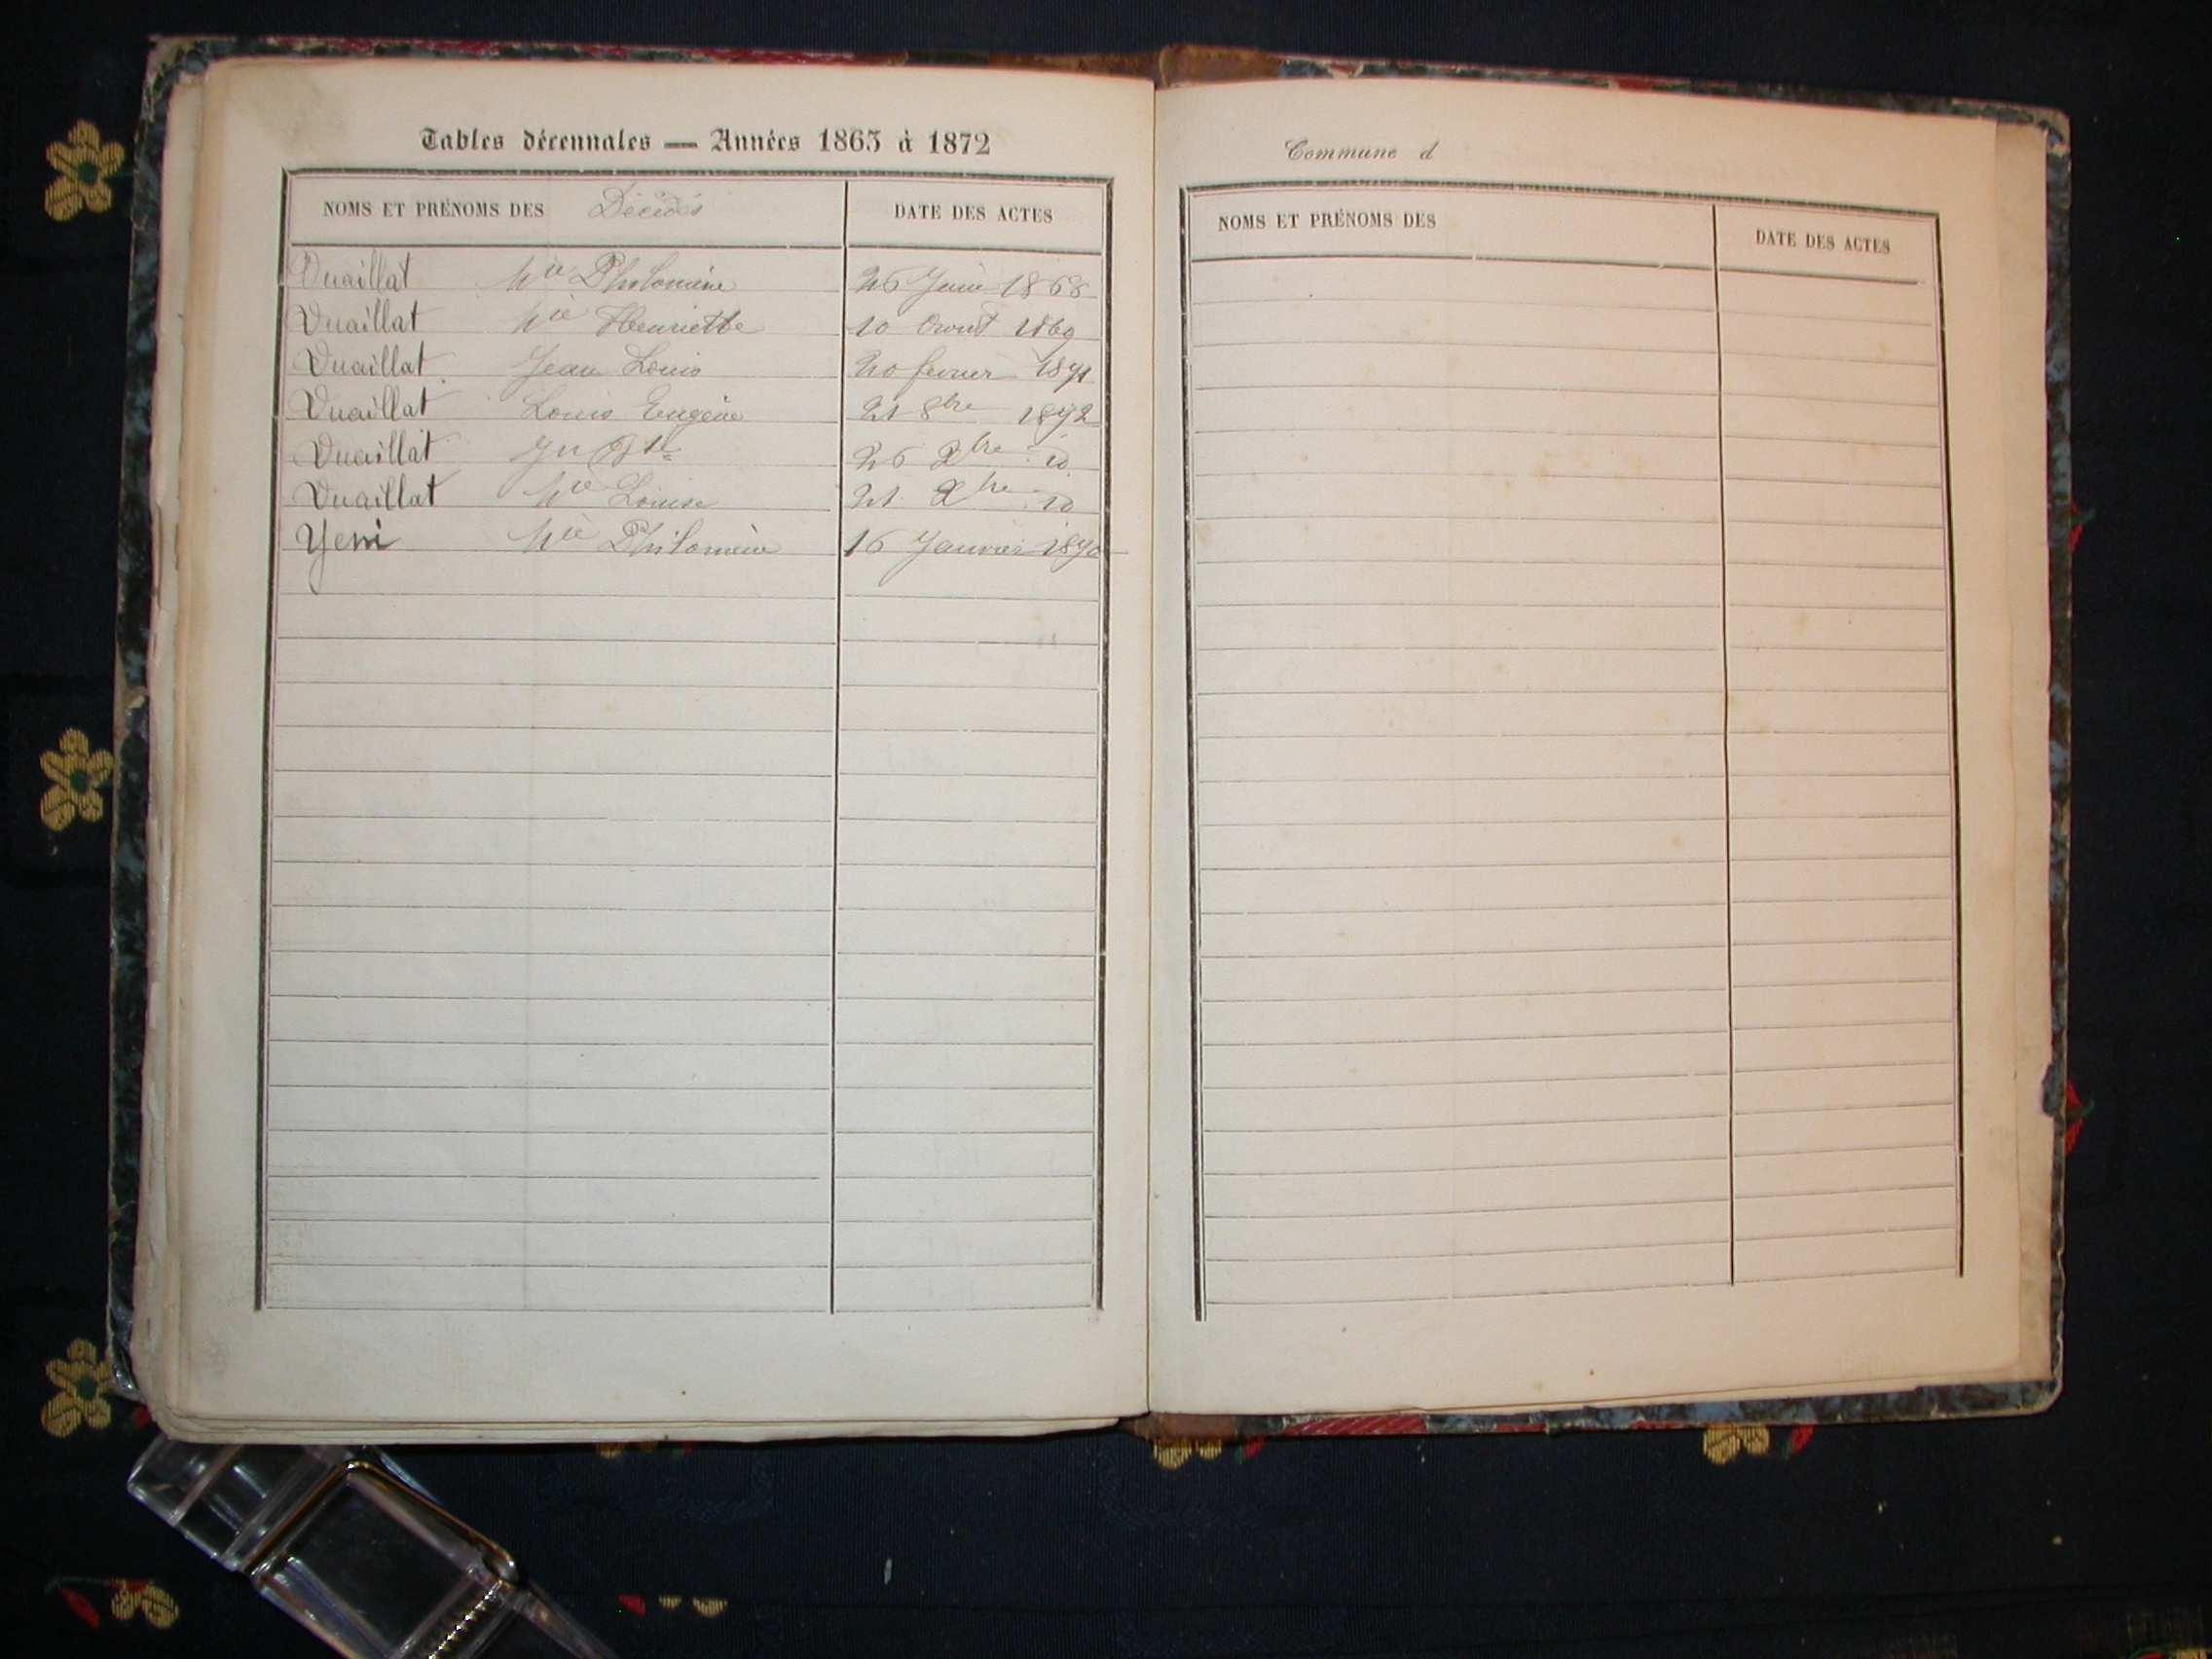 Tables décennales — Années 1863 à 1872
NOMS ET PRÉNOMS DES Décédés DATE DES ACTES
Vuaillat Mie Philomène 26 Juin 1868
Vuaillat Mie Henriette 10 Aout 1869
Vuaillat Jean Louis 20 fevrier 1871
Vuaillat Louis Eugène 21 8bre 1872
Vuaillat Jn Bte 26 Xbre id
Vuaillat Mie Louise 21 Xbre id
Yeni Mie Philomène 16 Janvier 1870
Commune d
NOMS ET PRÉNOMS DES DATE DES ACTES